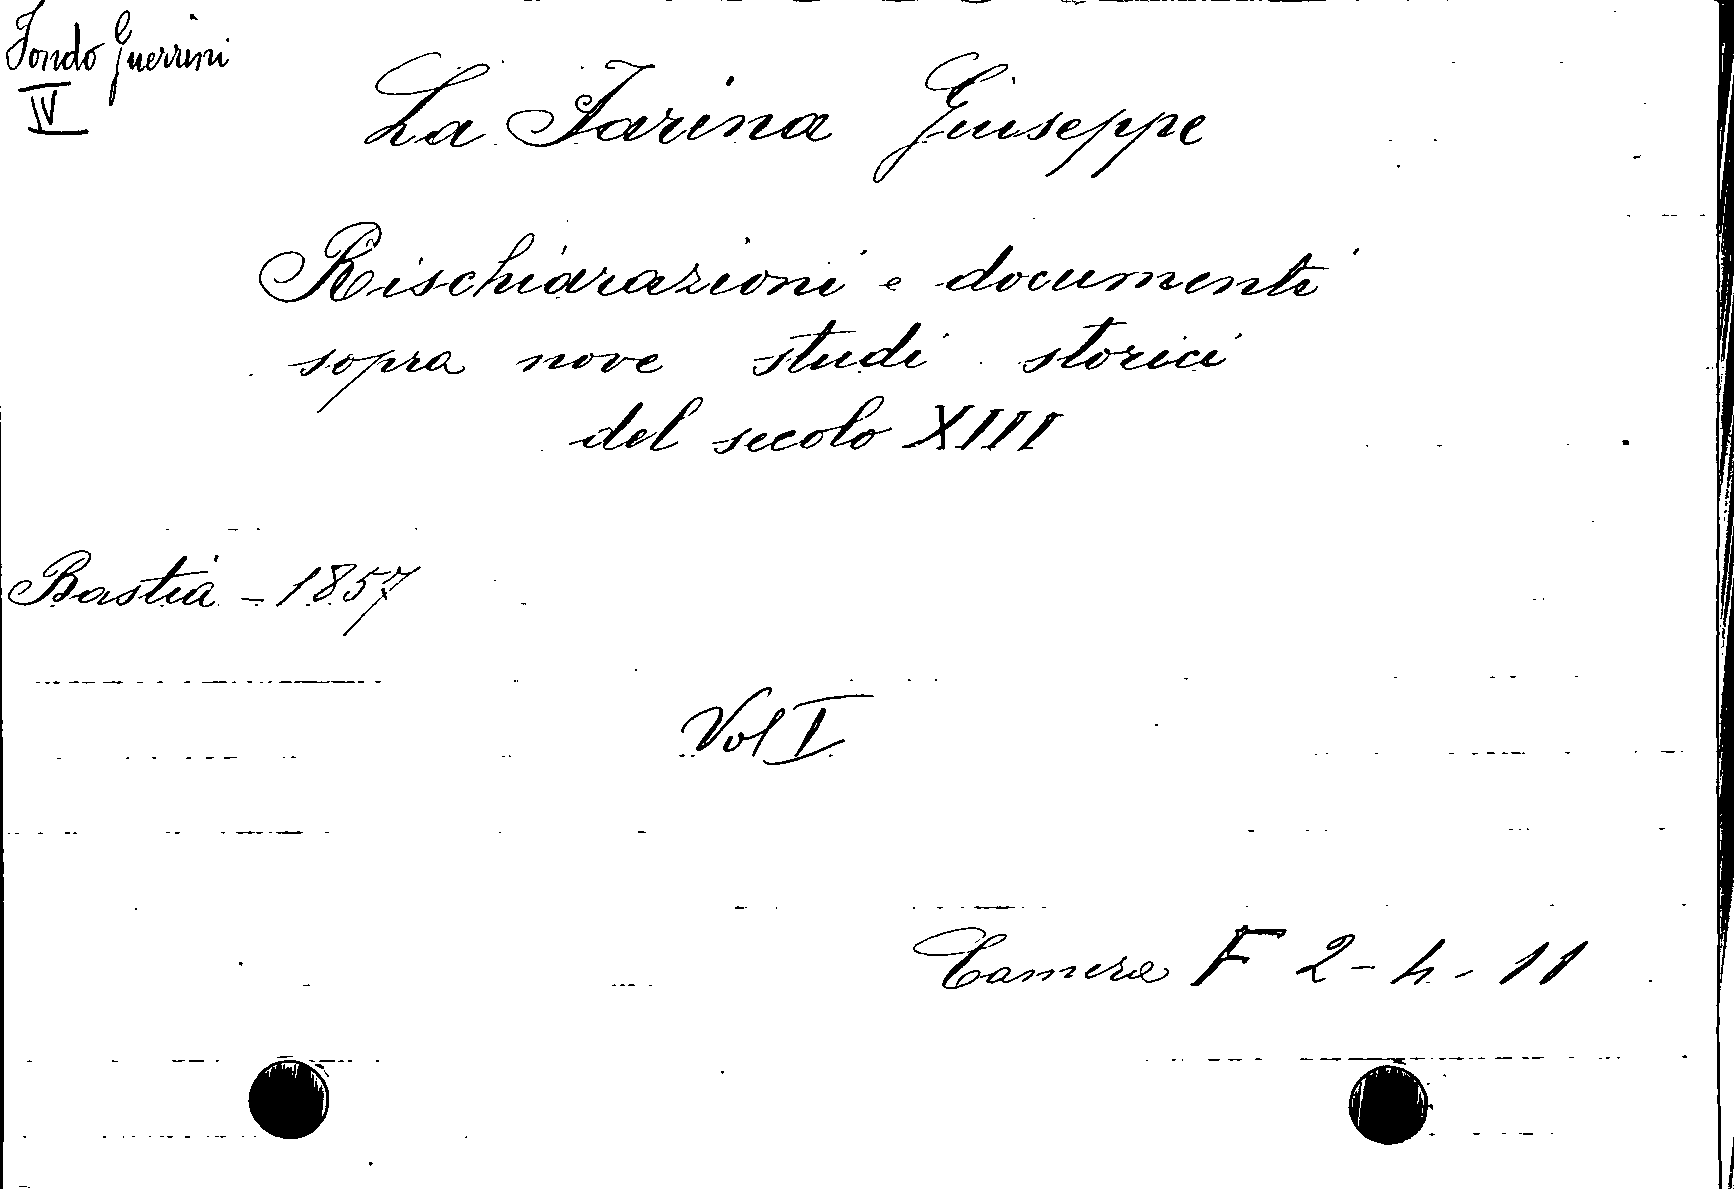 Fondo Guerrini
IV
La Farina Giuseppe
Rischiarazioni e documenti
sopra nove studi storici
del secolo XIII
Bastia - 1857
Vol I
Camera F 2-4-11